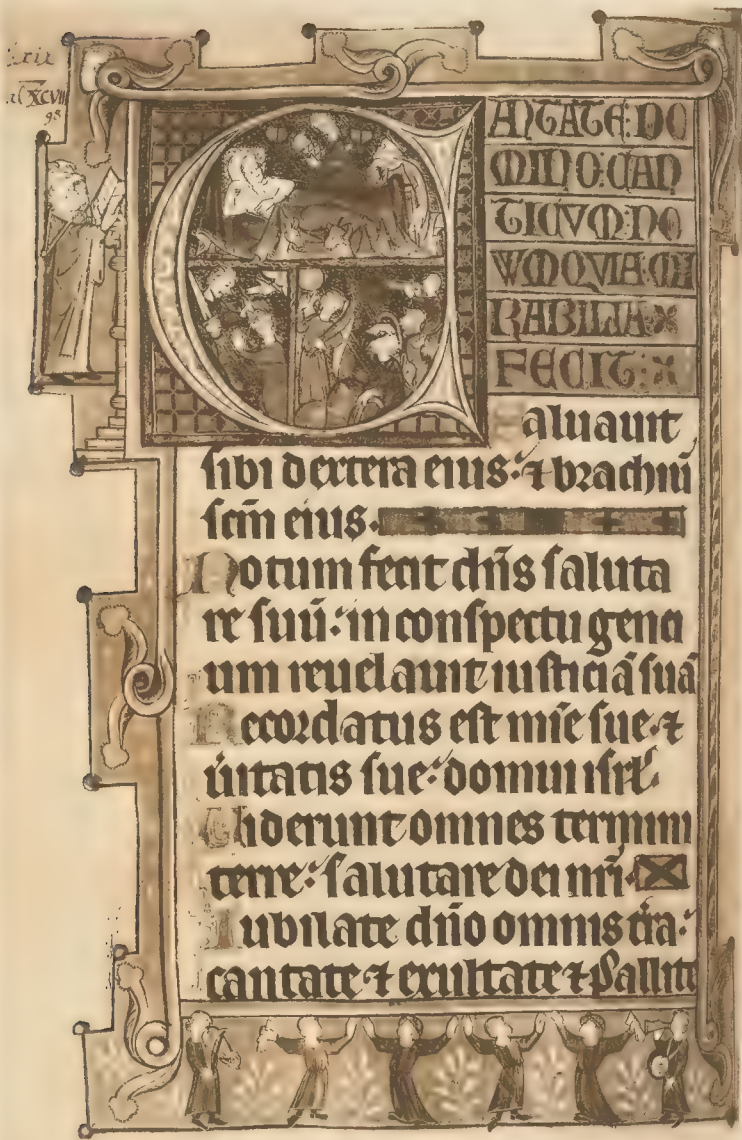 CANTATE:DO
MINO:CAN
TICVM:NO
WM QVIA:MI
RABILIA
FECIT:
Saluauit
sibi dextera eius: ⁊ brachiū
scm̄ eius.
Notum fecit dn̄s saluta
re suū: in conspectu genci
um reuelauit iusticiā suā
Recordatus est mīe sue ⁊
ūitatis sue: domui isrl.
Uiderunt omnes termini
terre: salutare dei nr̄i.
Iubilate dn̄o omnis tr̄a:
cantate ⁊ exultate ⁊ psallite